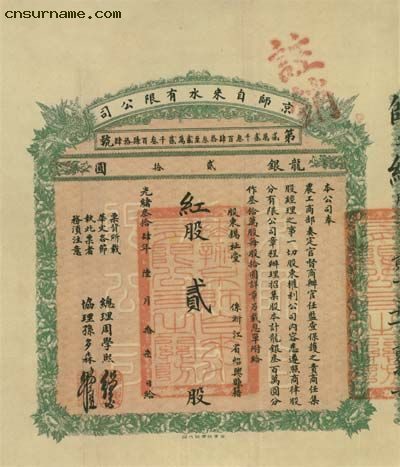 cnsurname.com
註銷
京師自來水有限公司
第貳萬貳千叁百肆拾叁至貳萬貳千叁百肆拾肆號
龍銀貳拾圓
本公司奉
農工商部奏定官督商辦官任監查保護之責商任集
股經理之事一切股東權利公司內容悉遵照商律股
分有限公司章程辦理招集股本計龍銀叁百萬圓分
作叁拾萬股每股拾圓詳章另載息單附給
股東錫祉堂 係浙江省紹興縣籍
紅股貳股
光緒叁拾肆年陸月拾壹日給
票背所載
華文各節
執此票者
務須注意
總理周學熙
協理孫多森